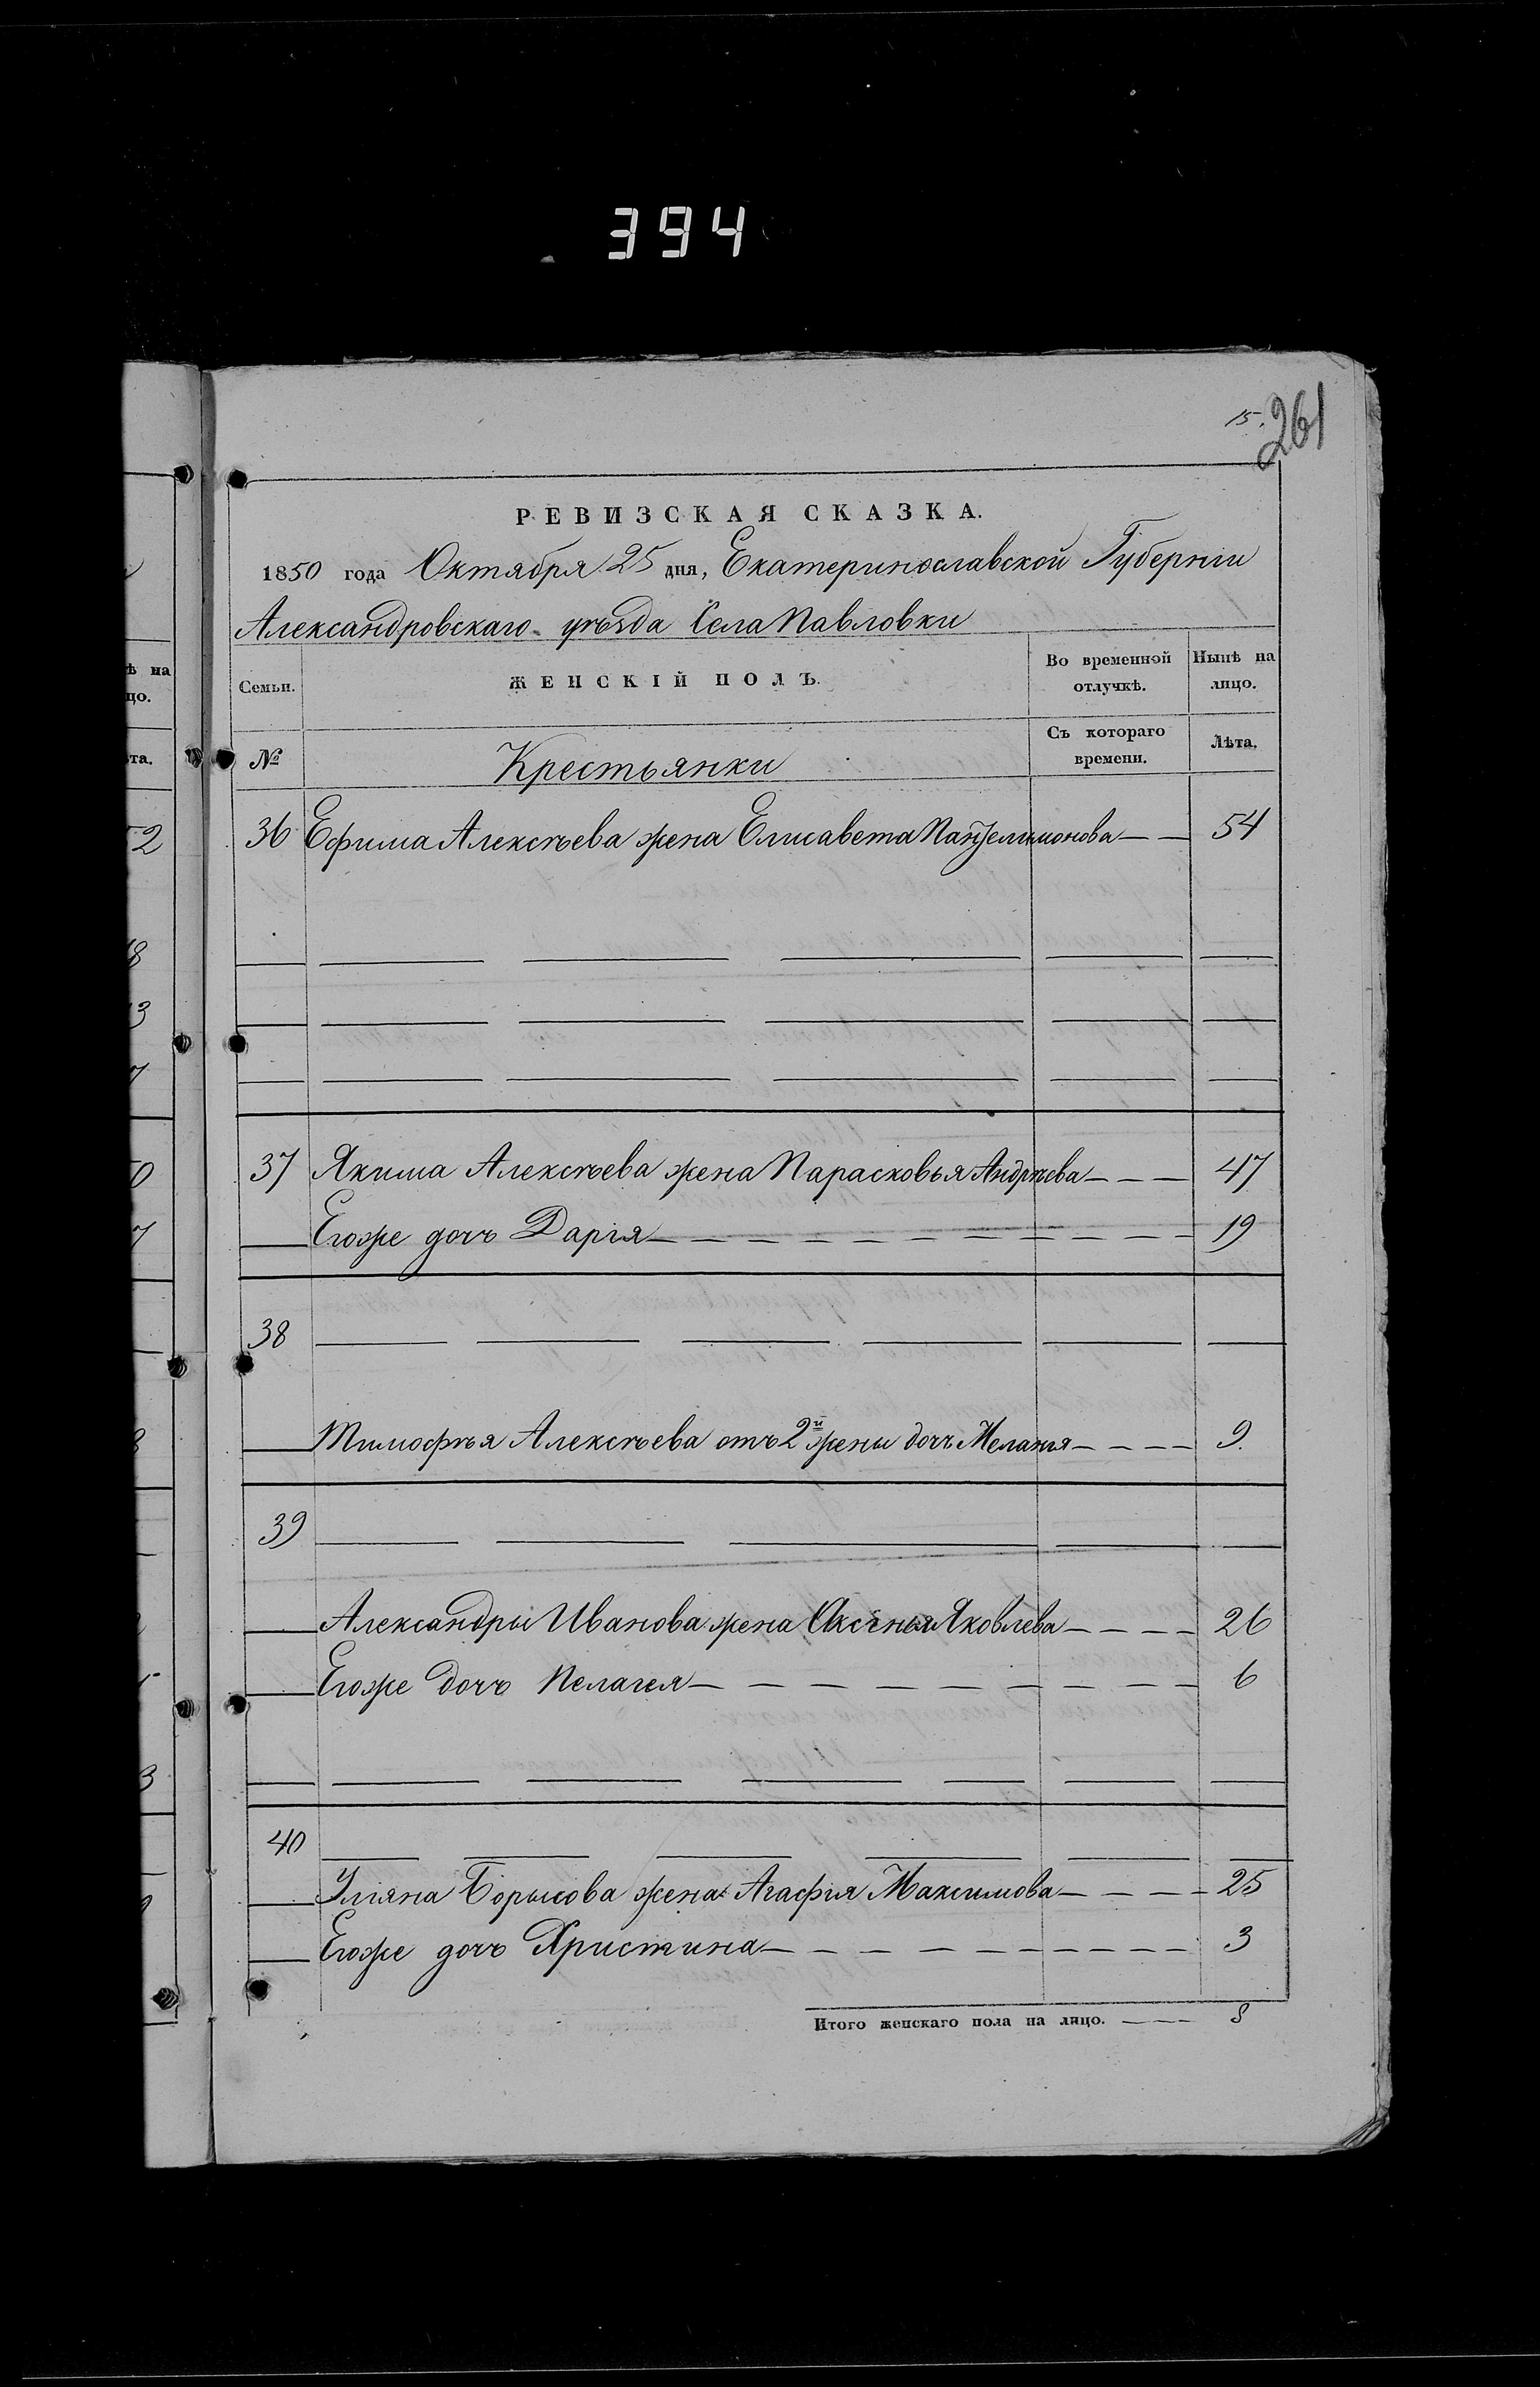 394
15.
261
РЕВИЗСКАЯ СКАЗКА.
1850 года Октября 25 дня, Екатеринославской Губерніи
Александровскаго уѣзда Села Павловки
Семьи.
ЖЕНСКІЙ ПОЛЪ.
Во временной отлучкѣ.
Нынѣ на лицо.
№
Крестьянки
Съ котораго времени.
Лѣта.
36 Ефима Алексѣева жена Елисавета Пантелимонова — — 54
37 Якима Алексѣева жена Парасковья Андрѣева — — — 47
Егоже дочь Дарія — — — — — — — — — — 19
38
Тимофѣя Алексѣева отъ 2й жены дочь Меланія — — — — 9.
39
Александры Иванова жена Аксенья Яковлева — — — — 26
Егоже дочь Пелагея — — — — — — — — — 6
40
Уліяна Борысова жена Агафія Максимова — — — — 25
Егоже дочь Христина — — — — — — — — — — 3
Итого женскаго пола на лицо. — — — 8
ѣ на
цо.
та.
2
8
3
7
0
7
3